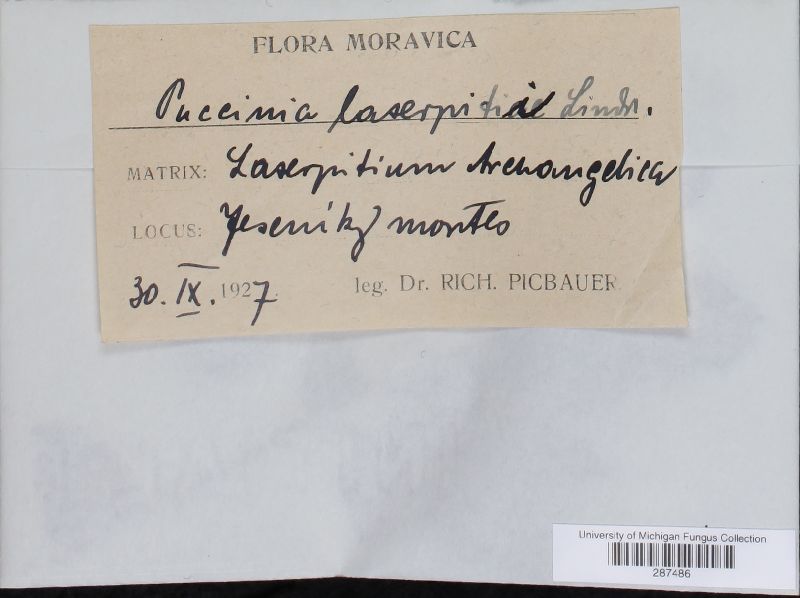 FLORA MORAVICA
Puccinia laserpitii Lindr.
MATRIX: Laserpitium Archangelica
LOCUS: Jeseníky montes
30. IX. 1927. leg. Dr. RICH. PICBAUER.
University of Michigan Fungus Collection
287486